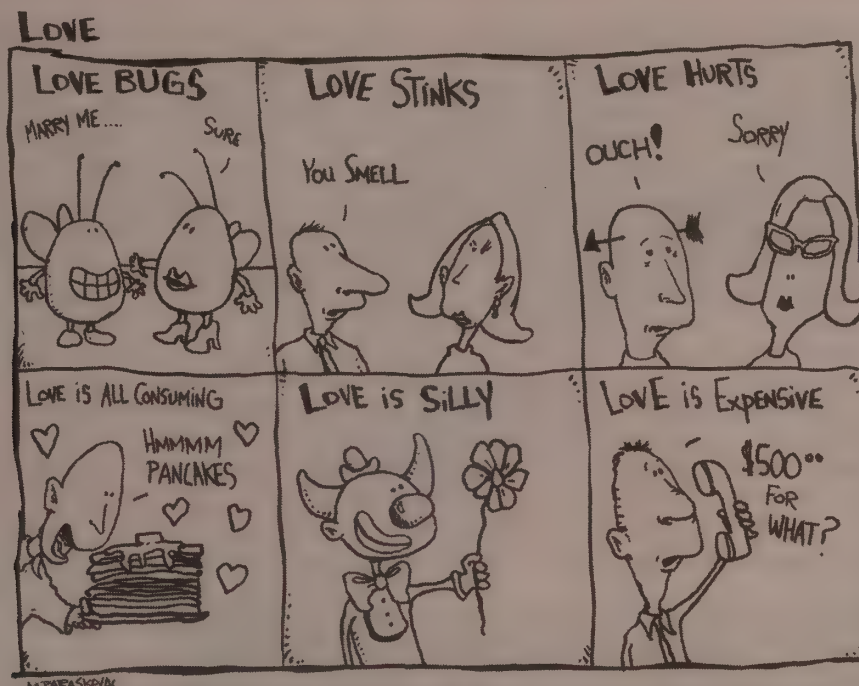 LOVE
LOVE BUGS
MARRY ME....
SURE
LOVE STINKS
YOU SMELL
LOVE HURTS
OUCH!
SORRY
LOVE is ALL CONSUMING
HMMMM
PANCAKES
LOVE is SiLLY
LOVE is EXPENSiVE
$500°°
FOR
WHAT?